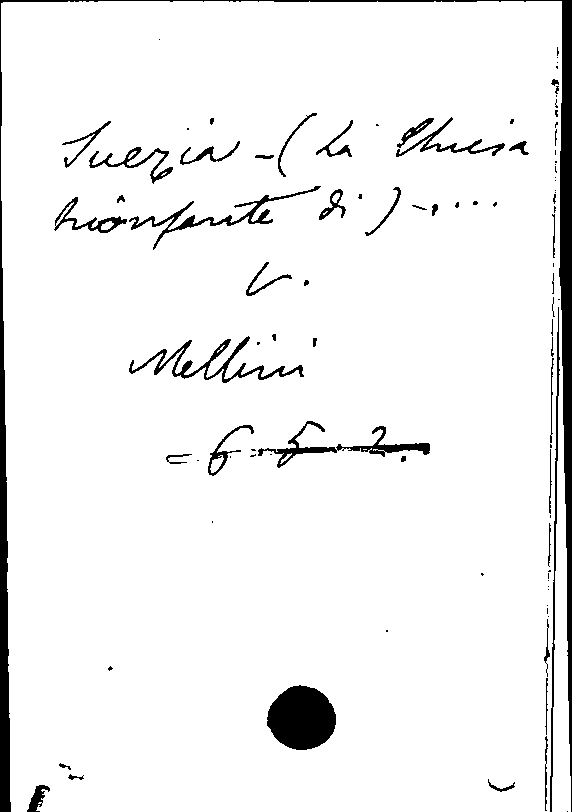 Suezia - (La Chiesa
trionfante di) - ....
V.
Mellini
= 6. 5. 2.